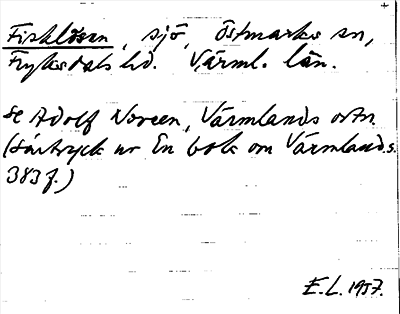 Fisklösen, sjö, Östmarks sn,
Fryksdals hd. Värml. län.
Se Adolf Noreen, Värmlands ortn.
(särtryck ur En bok om Värmland s.
383 f.)
E.L. 1957.